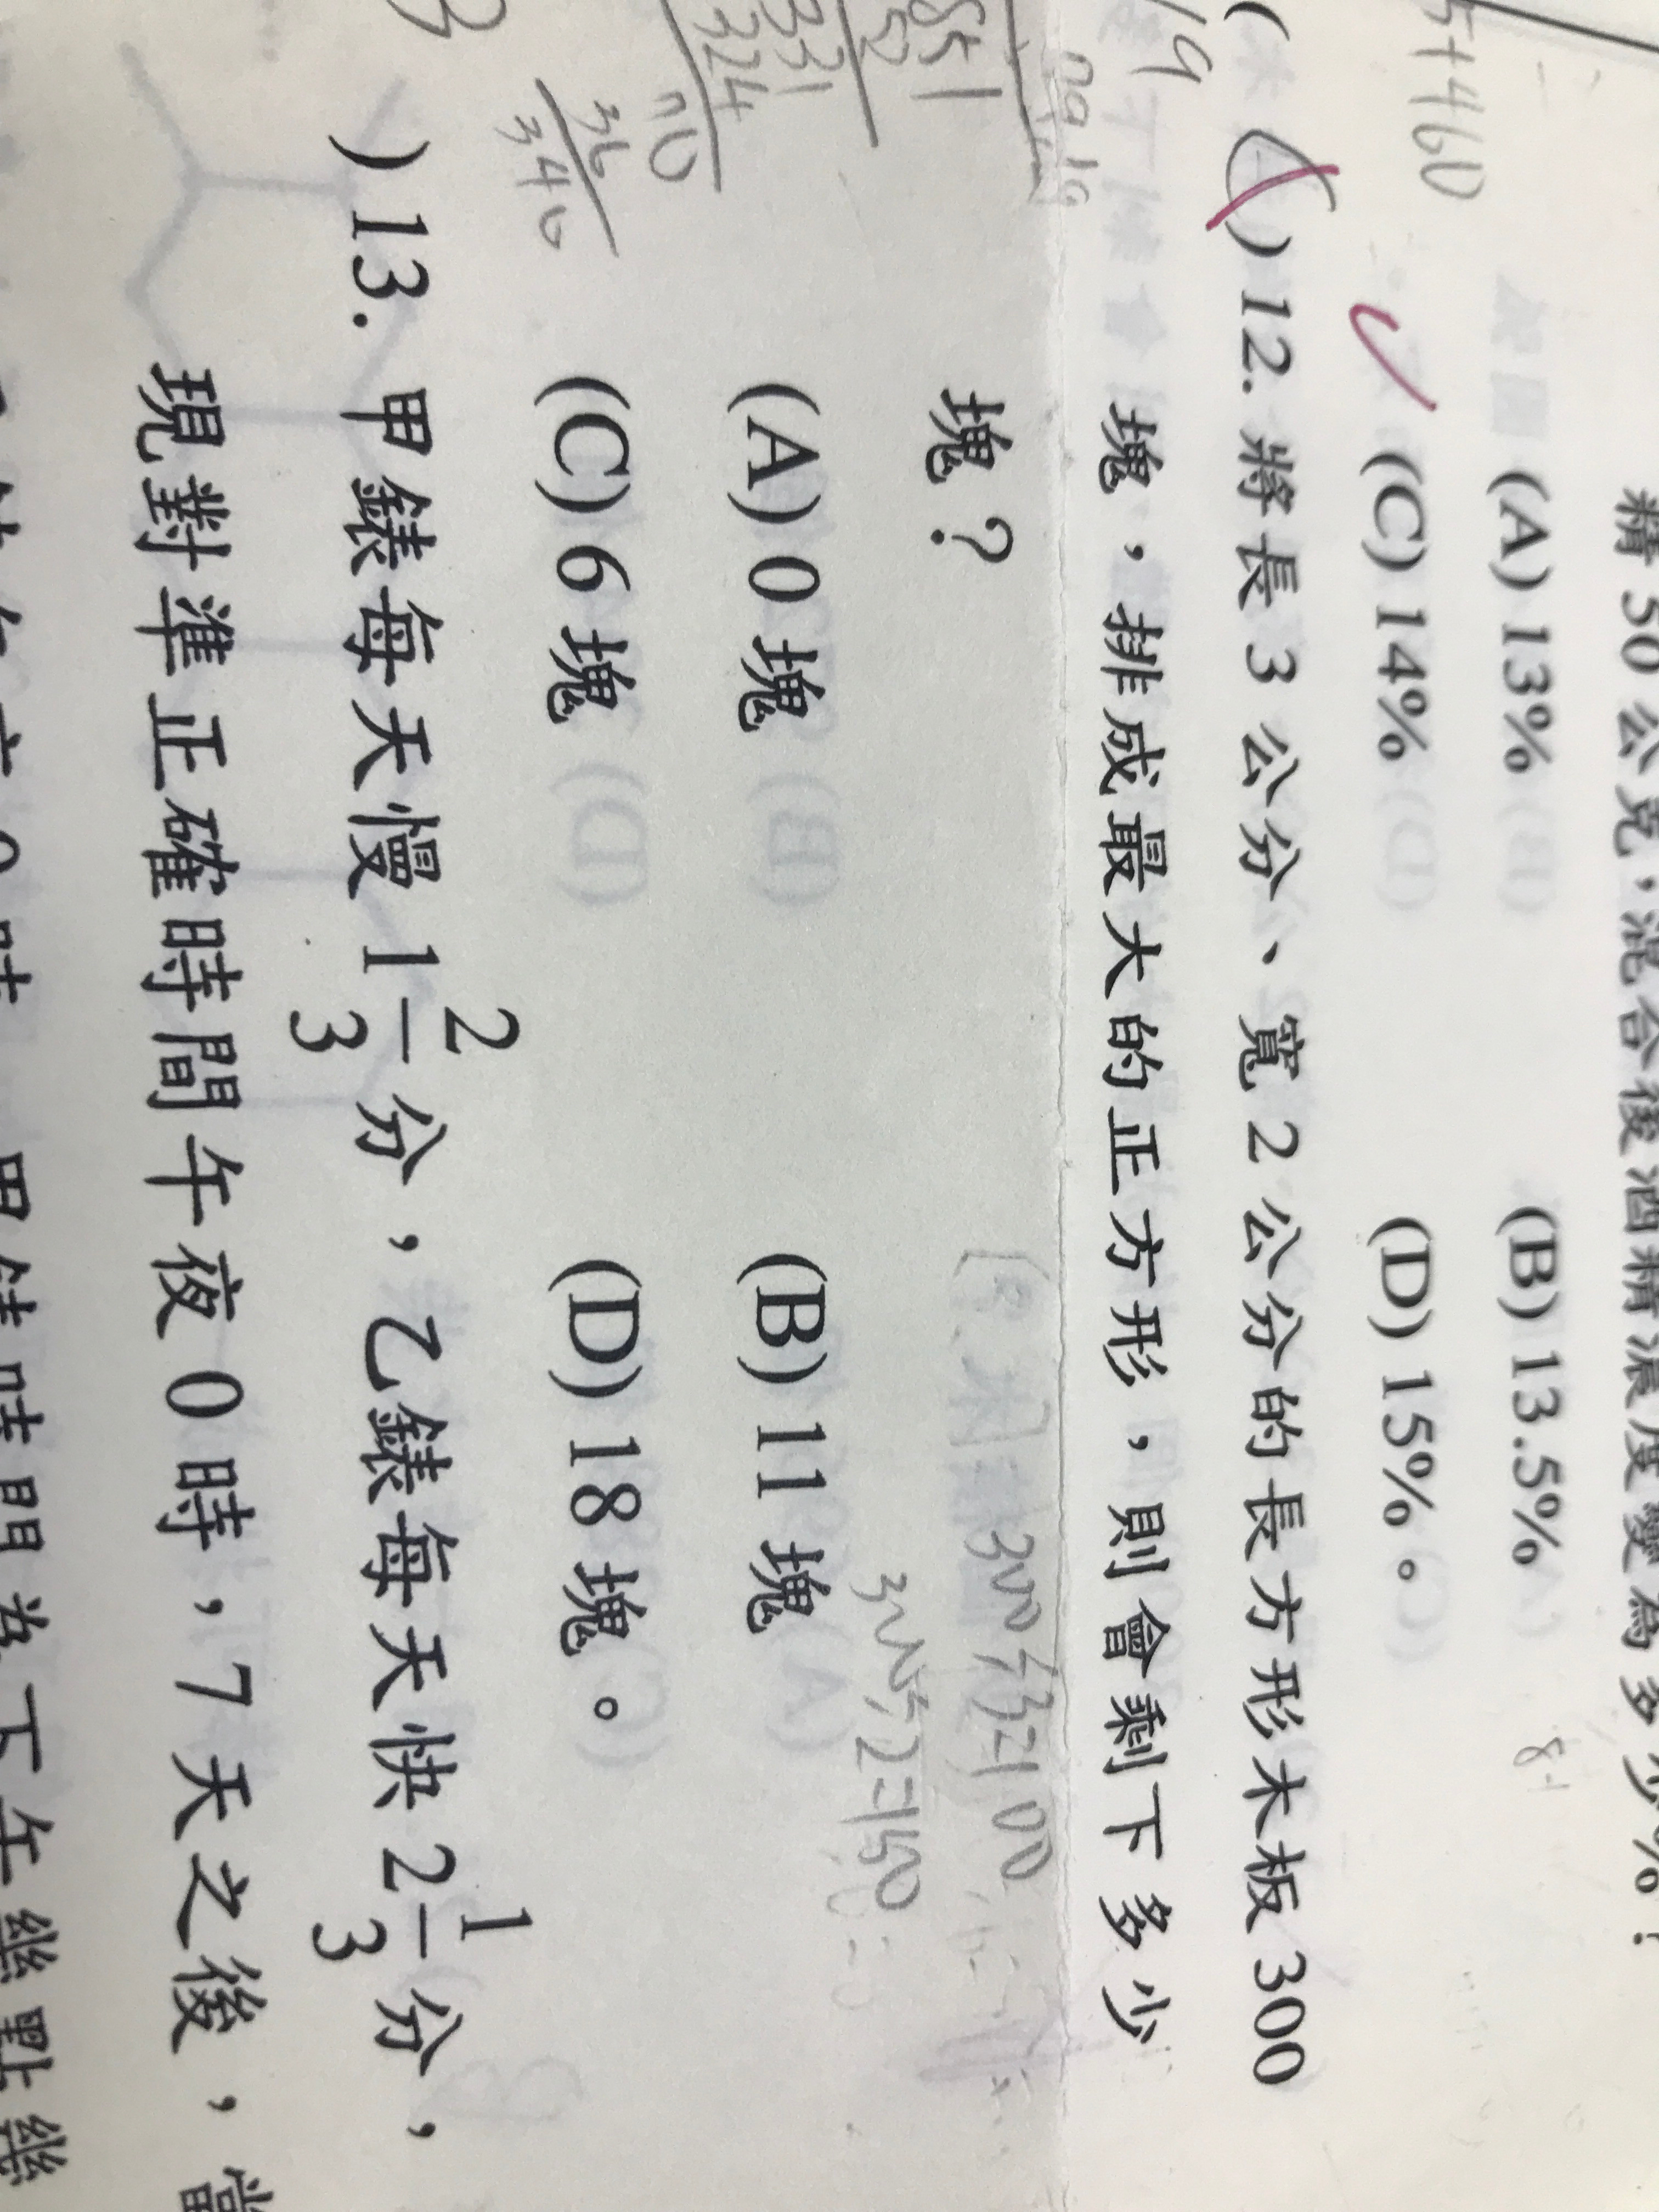 精 50 公克，混合後酒精濃度變為多少%？
(A) 13% (B) 13.5%
(C) 14% (D) 15%。
5+460
19
) 12. 將長 3 公分、寬 2 公分的長方形木板 300
塊，排成最大的正方形，則會剩下多少
塊？
300÷3=100
300÷2=150
(A) 0 塊 (B) 11 塊
(C) 6 塊 (D) 18 塊。
331
324
36
340
) 13. 甲錶每天慢 1 2/3 分，乙錶每天快 2 1/3 分，
現對準正確時間午夜 0 時，7 天之後，當